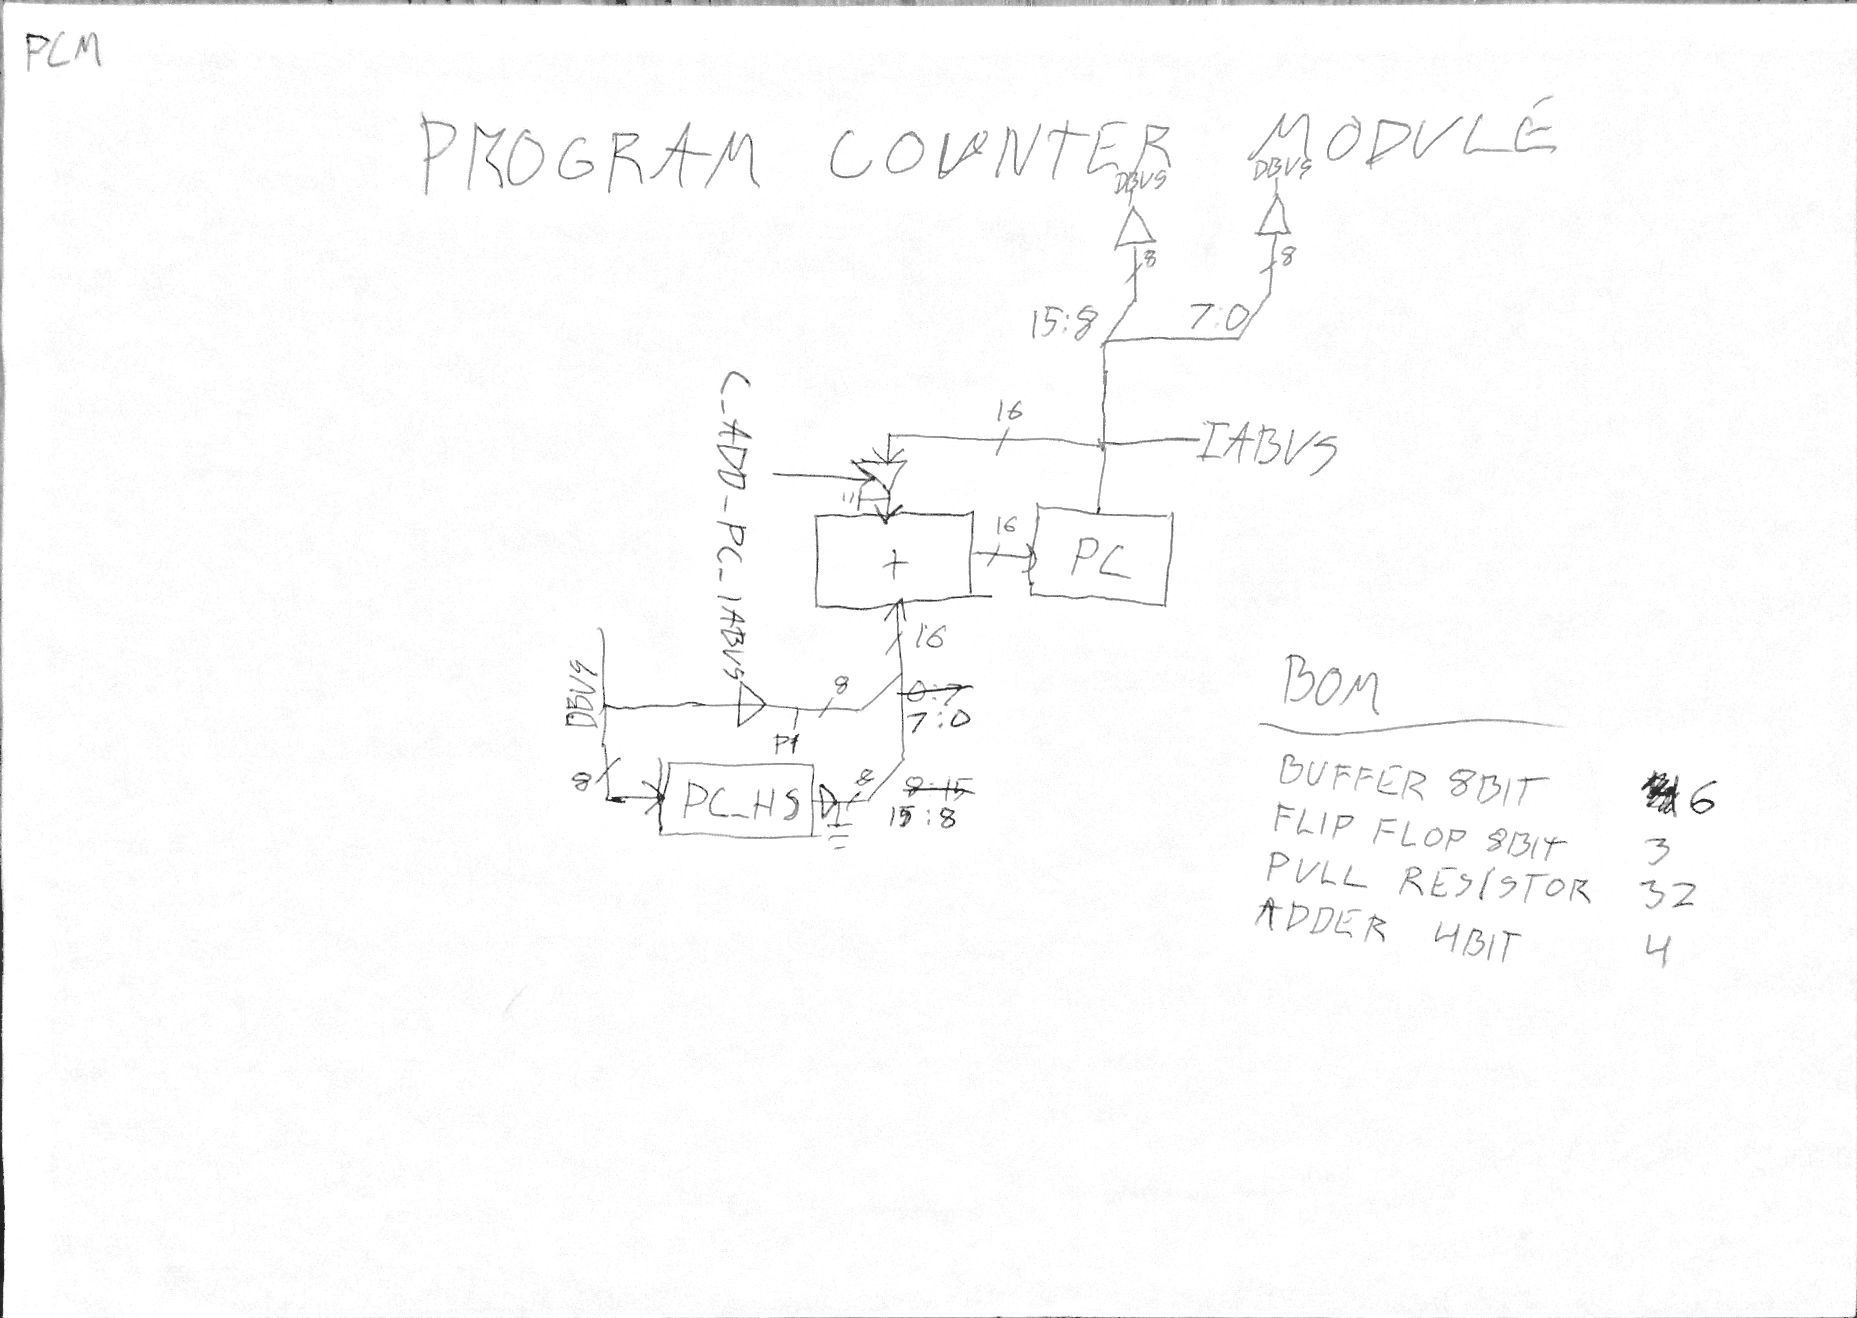 PCM
PROGRAM COUNTER MODULE
DBUS
DBUS
8
8
15:8
7:0
16
IABUS
C_ADD_PC_IABUS
+
16
PC
16
DBUS
8
0:7
7:0
P1
8
PC_HS
8
8:15
15:8
BOM
BUFFER 8BIT 6
FLIP FLOP 8BIT 3
PULL RESISTOR 32
ADDER 4BIT 4